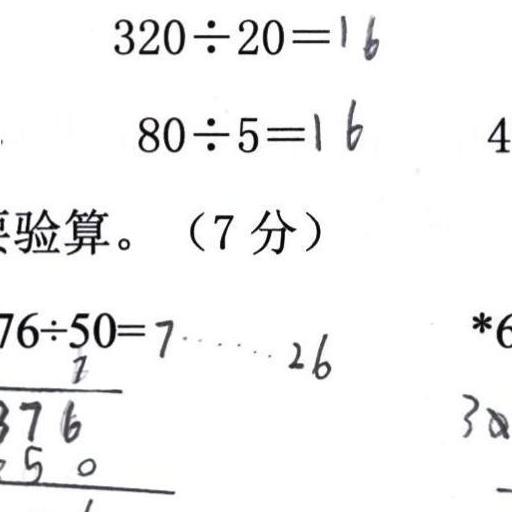 320÷20=16
80÷5=16 4
验算。（7分）
76÷50=7……26 *6
7
376 3
50